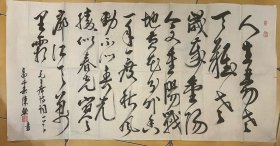 人生易老
天难老
岁岁重阳
今又重阳战
地黄花分外香
一年一度秋风
劲不似春光
胜似春光寥
廓江天万
里霜